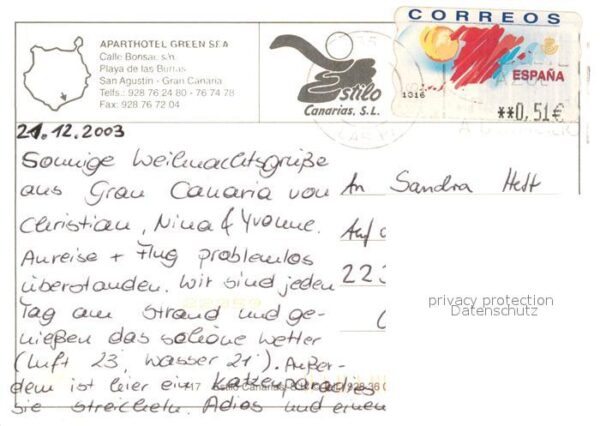 CORREOS
ESPAÑA
1316
**0,51€
APARTHOTEL GREEN SEA
Calle Bonsai, s/n.
Playa de las Burras
San Agustin - Gran Canaria
Telfs.: 928 76 24 80 - 76 74 78
Fax: 928 76 72 04
Estilo
Canarias, S.L.
21.12.2003
Sonnige Weihnachtsgrüße
aus Gran Canaria von
Christian, Nina & Yvonne.
Anreise + Flug problemlos
überstanden. Wir sind jeden
Tag am Strand und ge-
nießen das schöne Wetter
(Luft 23°, Wasser 21°). Außer-
dem ist hier ein Katzenparadies
sie streicheln. Adios und einen
An Sandra Hett
Auf d
223
privacy protection
Datenschutz
22359
417 Estilo Canarias, S.L. 928 36 0